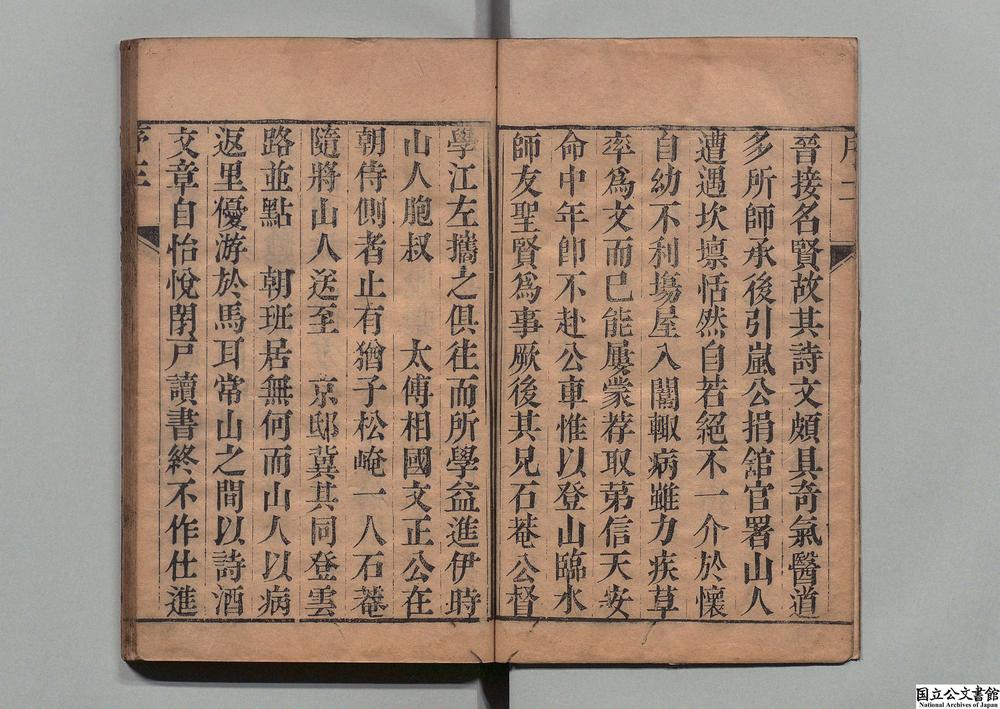 晉接名賢故其詩文頗具奇氣醫道
多所師承後引嵐公捐舘官署山人
遭遇坎壈恬然自若絕不一介於懷
自幼不利塲屋入闈輙病雖力疾草
率爲文而已能屢蒙荐取第信天安
命中年卽不赴公車惟以登山臨水
師友聖賢爲事厥後其兄石菴公督
學江左攜之俱往而所學益進伊時
山人胞叔　太傅相國文正公在
朝侍側者止有猶子松崦一人石菴
隨將山人送至　京邸冀其同登雲
路並點　朝班居無何而山人以病
返里優游於馬耳常山之間以詩酒
文章自怡悅閉戸讀書終不作仕進
国立公文書館
National Archives of Japan